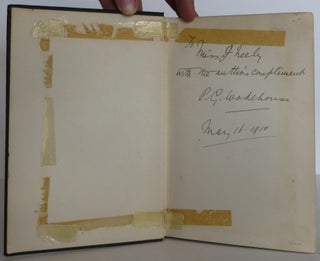 To
Miss J Neely
with the author's compliments
P. G. Wodehouse
May 16. 1910